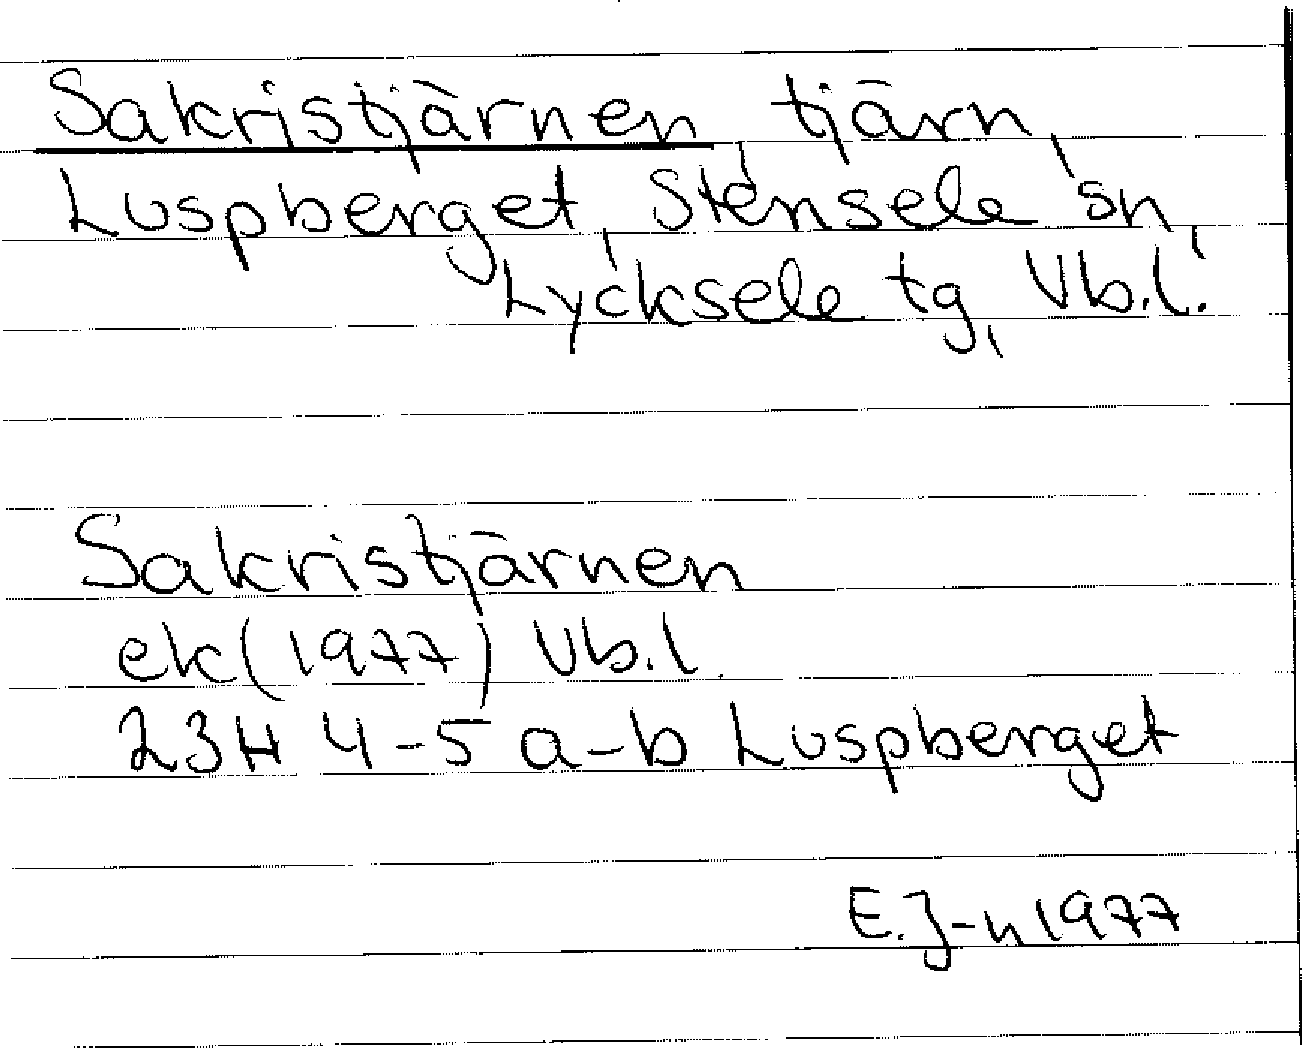 Sakristjärnen, tjärn,
Luspberget, Stensele sn,
Lycksele tg, Vb.l.
Sakristjärnen
ek (1977) Vb.l.
23H 4-5 a-b Luspberget
E.J-n 1977